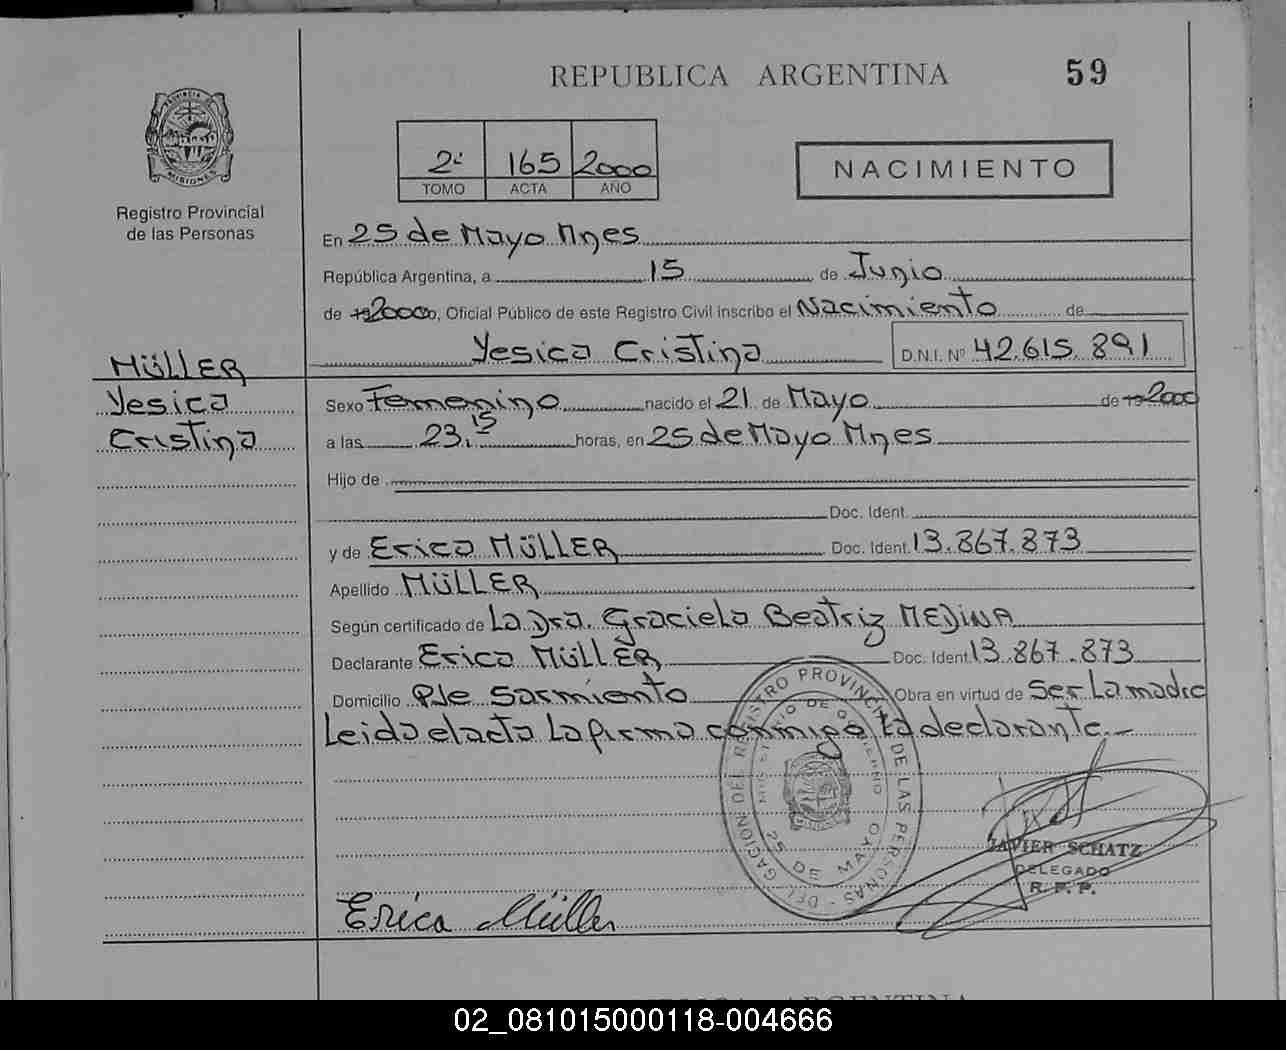 REPUBLICA ARGENTINA
59
PROVINCIA DE MISIONES
Registro Provincial
de las Personas
2º 165 2000
TOMO ACTA AÑO
NACIMIENTO
En 25 de Mayo Mnes
República Argentina, a 15 de Junio
de 19 2000, Oficial Público de este Registro Civil inscribo el Nacimiento de
Yesica Cristina D.N.I. Nº 42.615.891
MÜLLER
Yesica
Cristina
Sexo Femenino nacido el 21 de Mayo de 19 2000
a las 23.15 horas, en 25 de Mayo Mnes
Hijo de
Doc. Ident.
y de Erica MÜLLER Doc. Ident. 13.867.873
Apellido MÜLLER
Según certificado de La Dra. Graciela Beatriz MEDINA
Declarante Erica MÜLLER Doc. Ident. 13.867.873
Domicilio Pje Sarmiento Obra en virtud de Ser La madre
Leida el acta La firma conmigo La declarante.-
DELEGACION DEL REGISTRO PROVINCIAL DE LAS PERSONAS
MINISTERIO DE GOBIERNO
25 DE MAYO
JAVIER SCHATZ
DELEGADO
R. P. P.
Erica Müller
REPUBLICA ARGENTINA
02_081015000118-004666